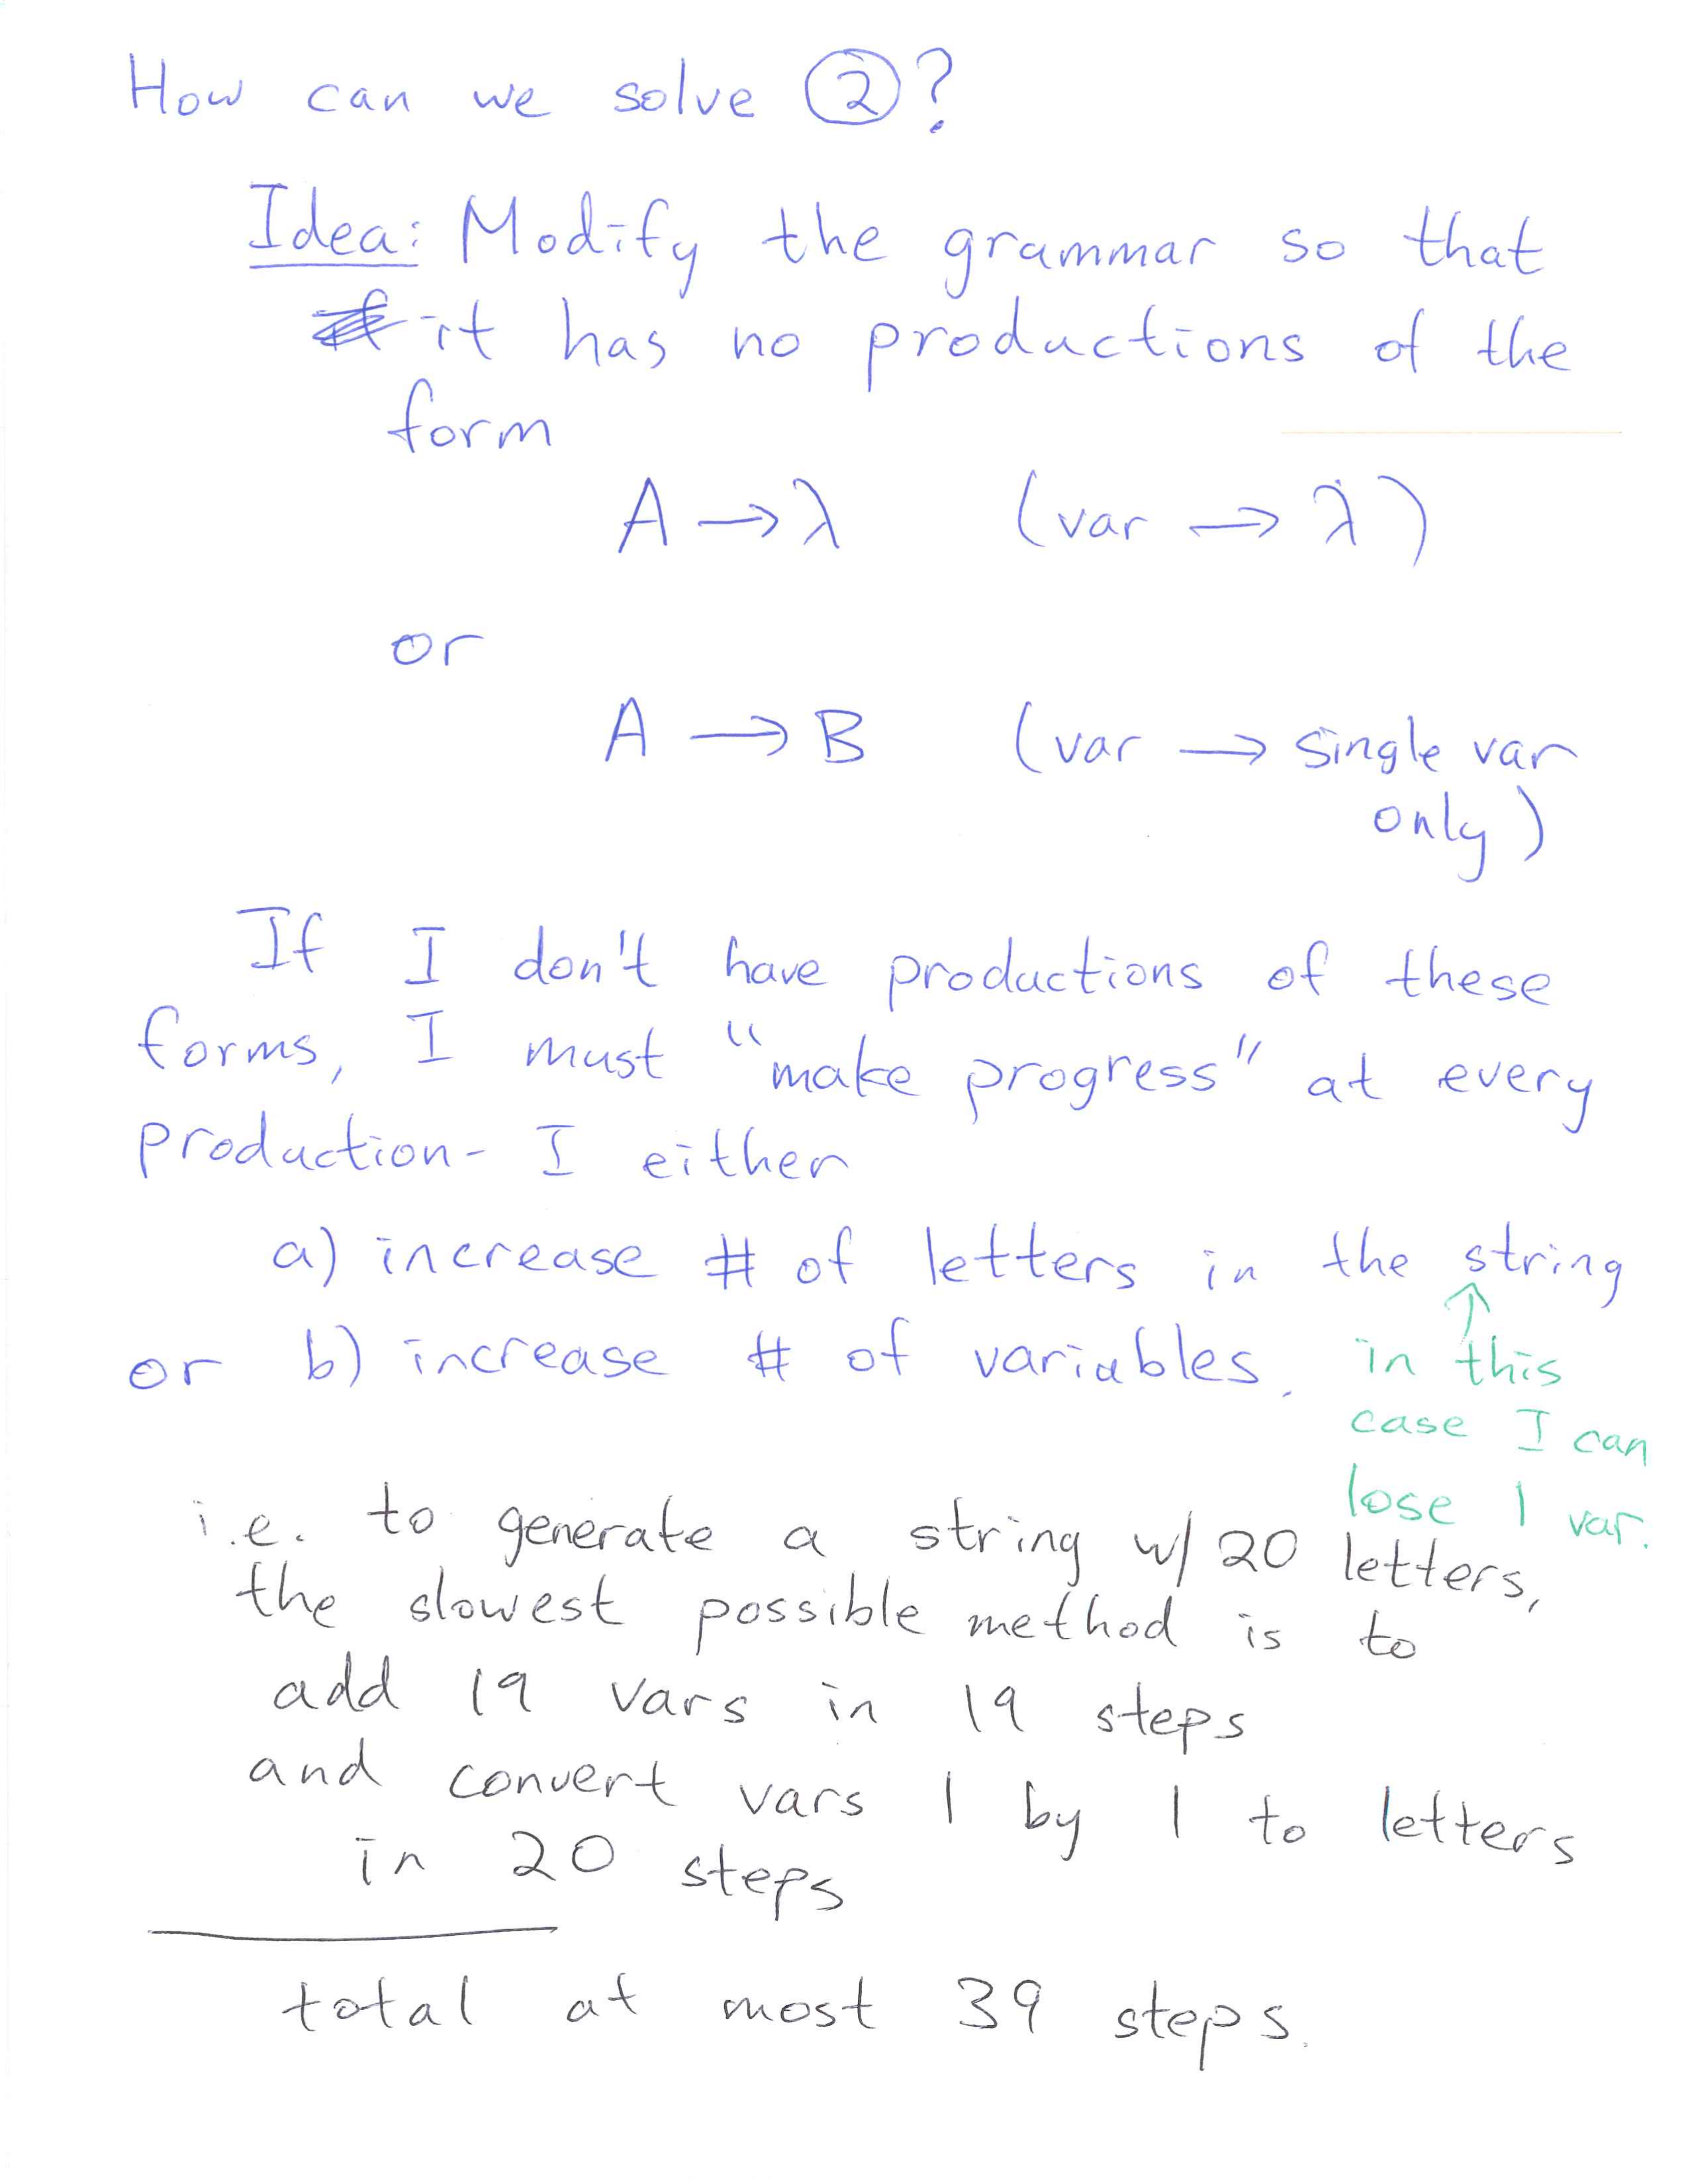 How can we solve ②?
Idea: Modify the grammar so that
it has no productions of the
form
A → λ (var → λ)
or
A → B (var → single var
only)
If I don't have productions of these
forms, I must "make progress" at every
production - I either
a) increase # of letters in the string
or b) increase # of variables.
↑
in this
case I can
lose 1 var.
i.e. to generate a string w/ 20 letters,
the slowest possible method is to
add 19 vars in 19 steps
and convert vars 1 by 1 to letters
in 20 steps
total at most 39 steps.